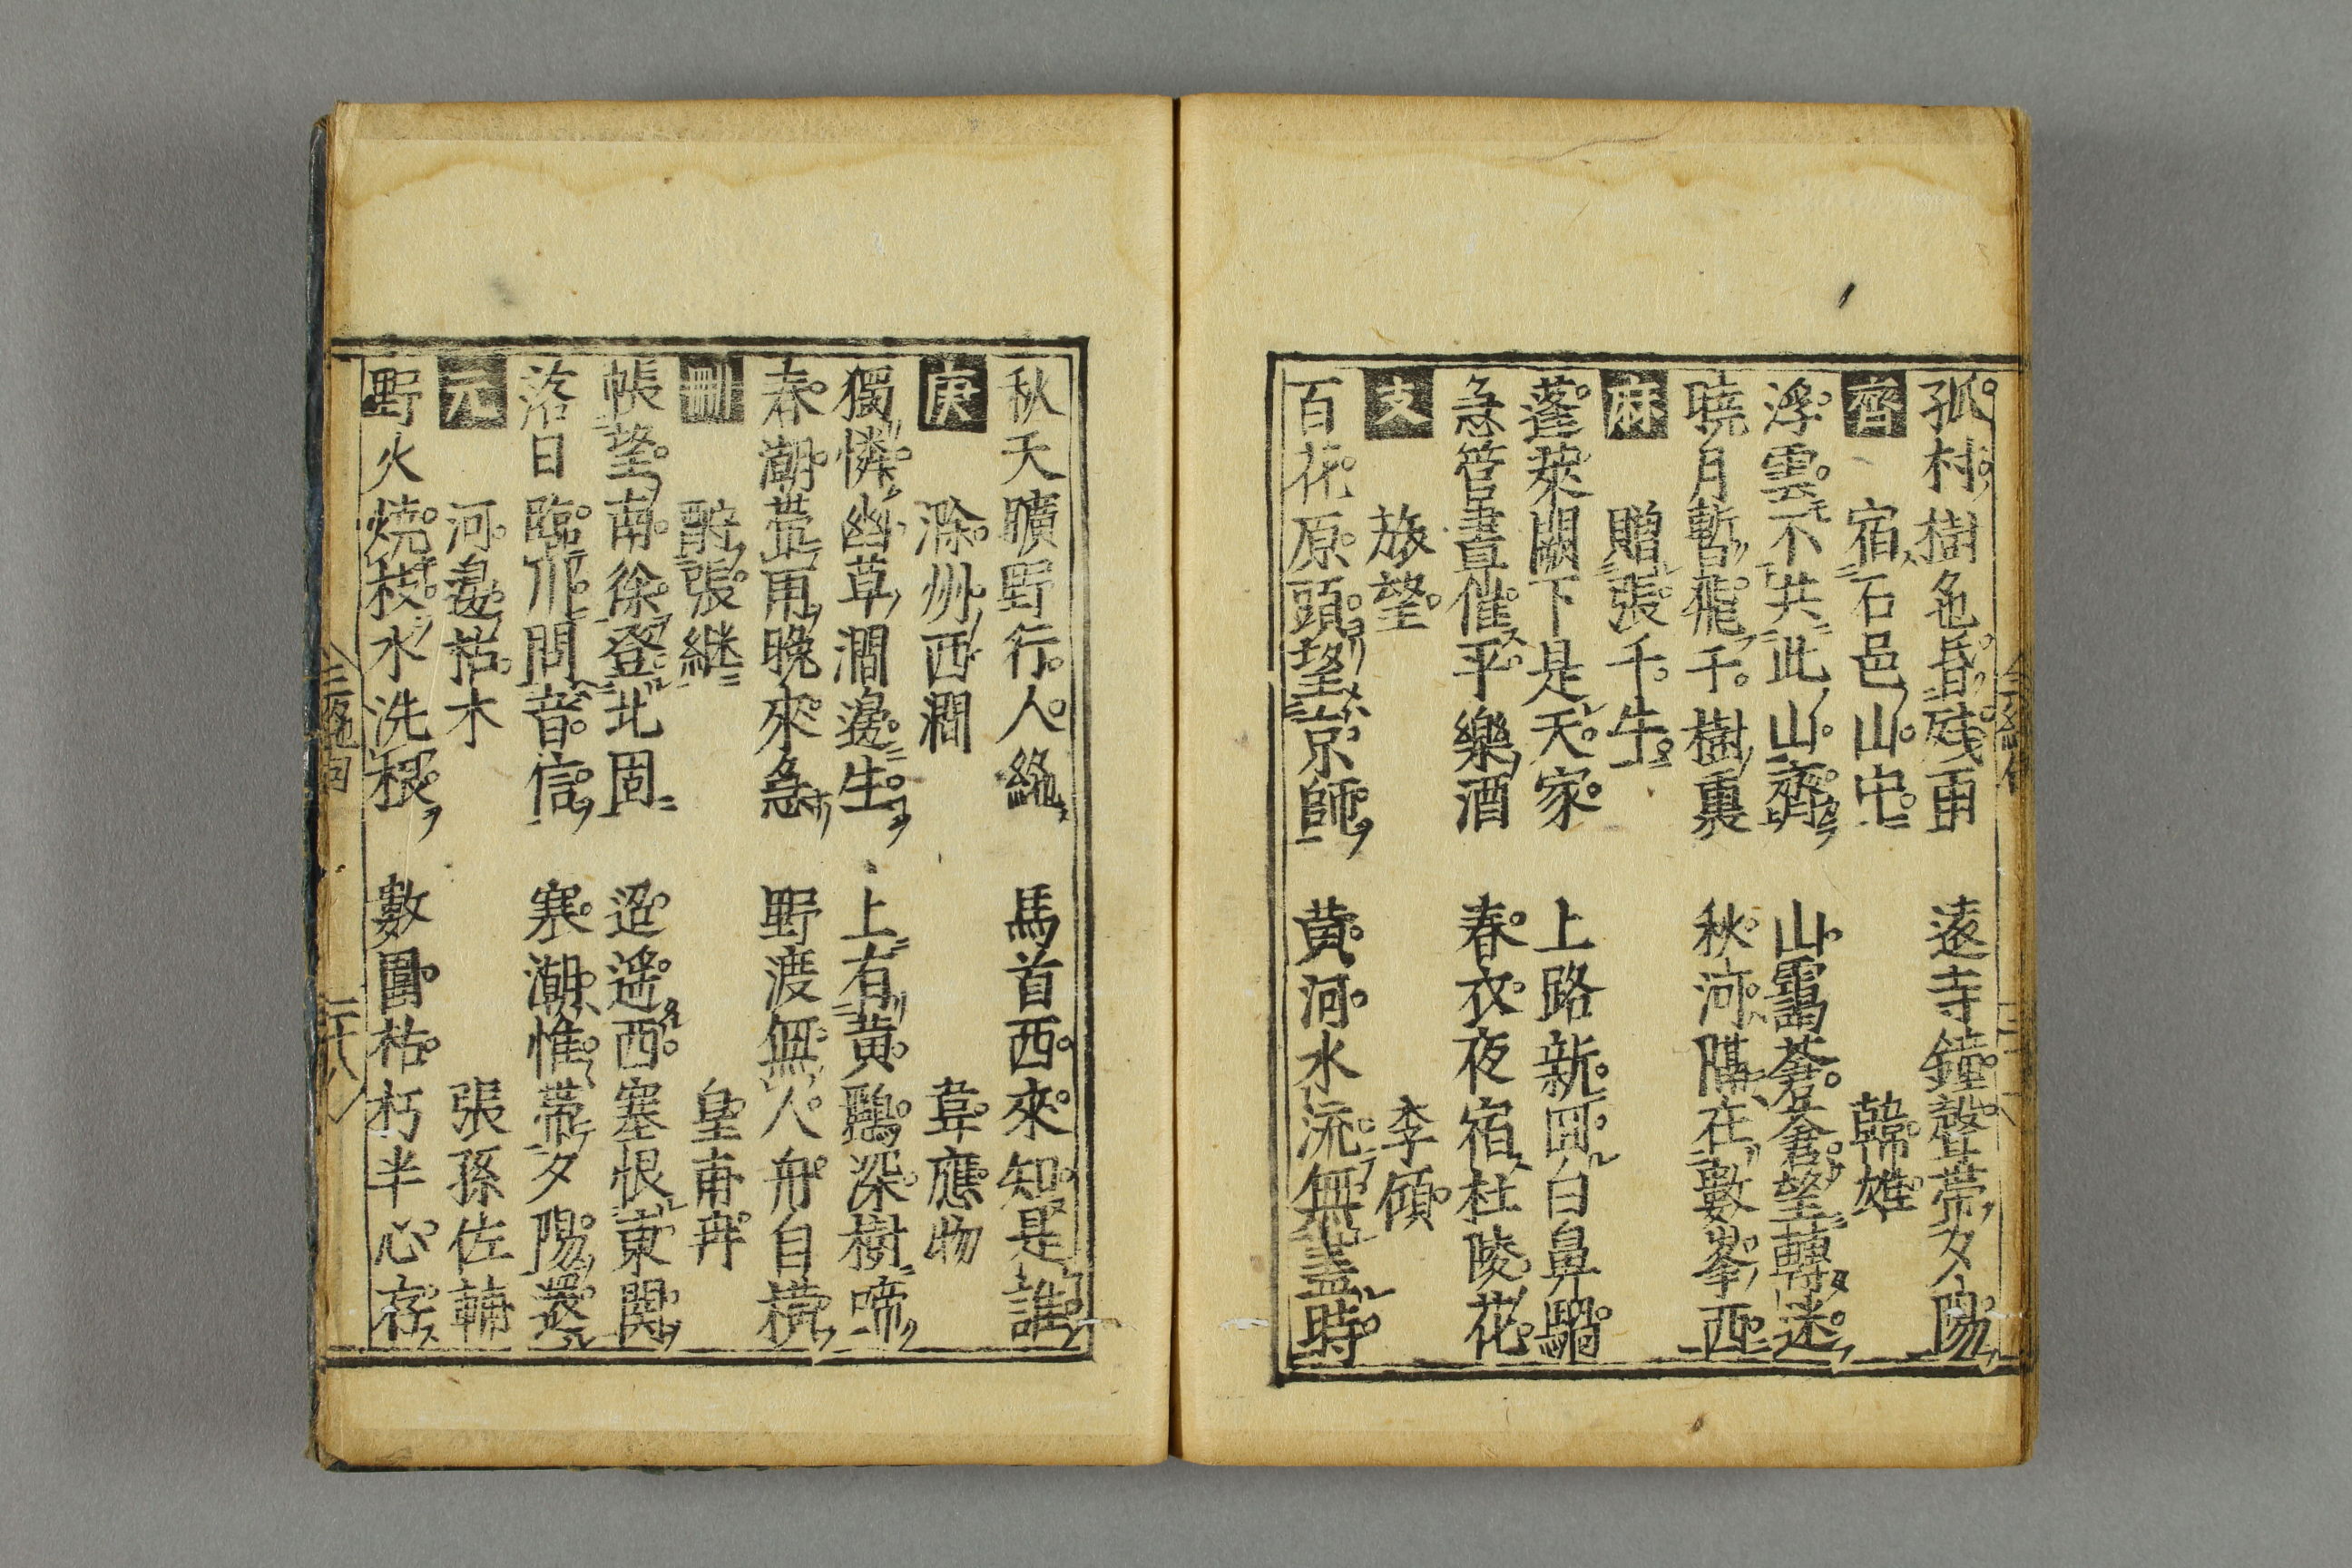 孤村樹色昏殘雨　遠寺鐘聲帶夕陽
齊　宿石邑山中　韓雄
浮雲不共此山齊　山靄蒼蒼望轉迷
曉月暫飛千樹裏　秋河隔在數峯西
麻　贈張千牛
蓬萊闕下是天家　上路新回白鼻騧
急管晝催平樂酒　春衣夜宿杜陵花
支　旅望　李頎
百花原頭望京師　黄河水流無盡時
秋天曠野行人絶　馬首西來知是誰
庚　滁州西澗　韋應物
獨憐幽草澗邊生　上有黄鸝深樹啼
春潮帶雨晚來急　野渡無人舟自横
刪　酧張継　皇甫冉
帳望南徐登北固　迢遥西塞恨東関
落日臨川問音信　寒潮惟帶夕陽還
元　河邊枯木　張孫佐輔
野火燒枝水洗根　數圍枯朽半心存
三體詩
二十八